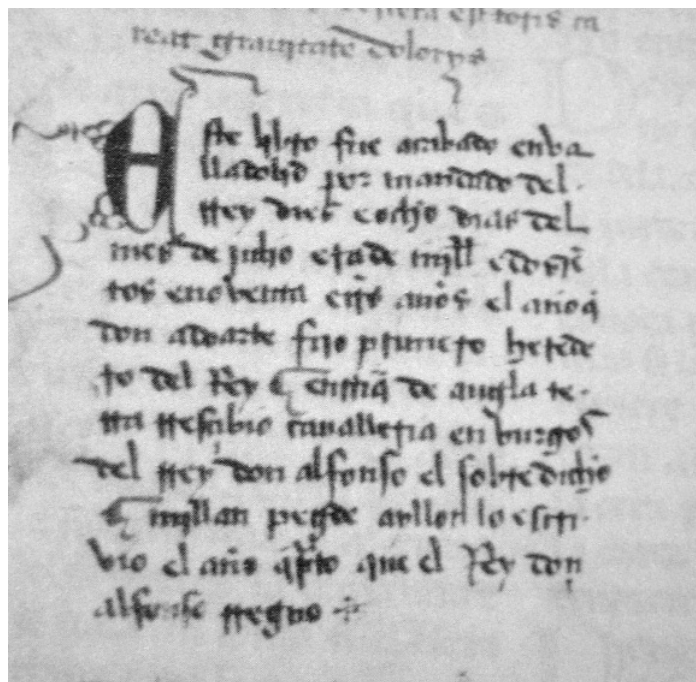 reat grauitate dolorys
Este libro fue acabado enva
lladolid por mandado del
rrey dies e ocho dias del
mes de julio era de mill e dosie
tos e noventa e tres años el año q
don adoarte fijo primero herede
ro del Rey enrriq de anglate
rra rrescibio cavalleria en burgos
del rrey don alfonso el sobredicho
millan peres de ayllon lo escri
vio el año qrto que el Rey don
alfonso rregno